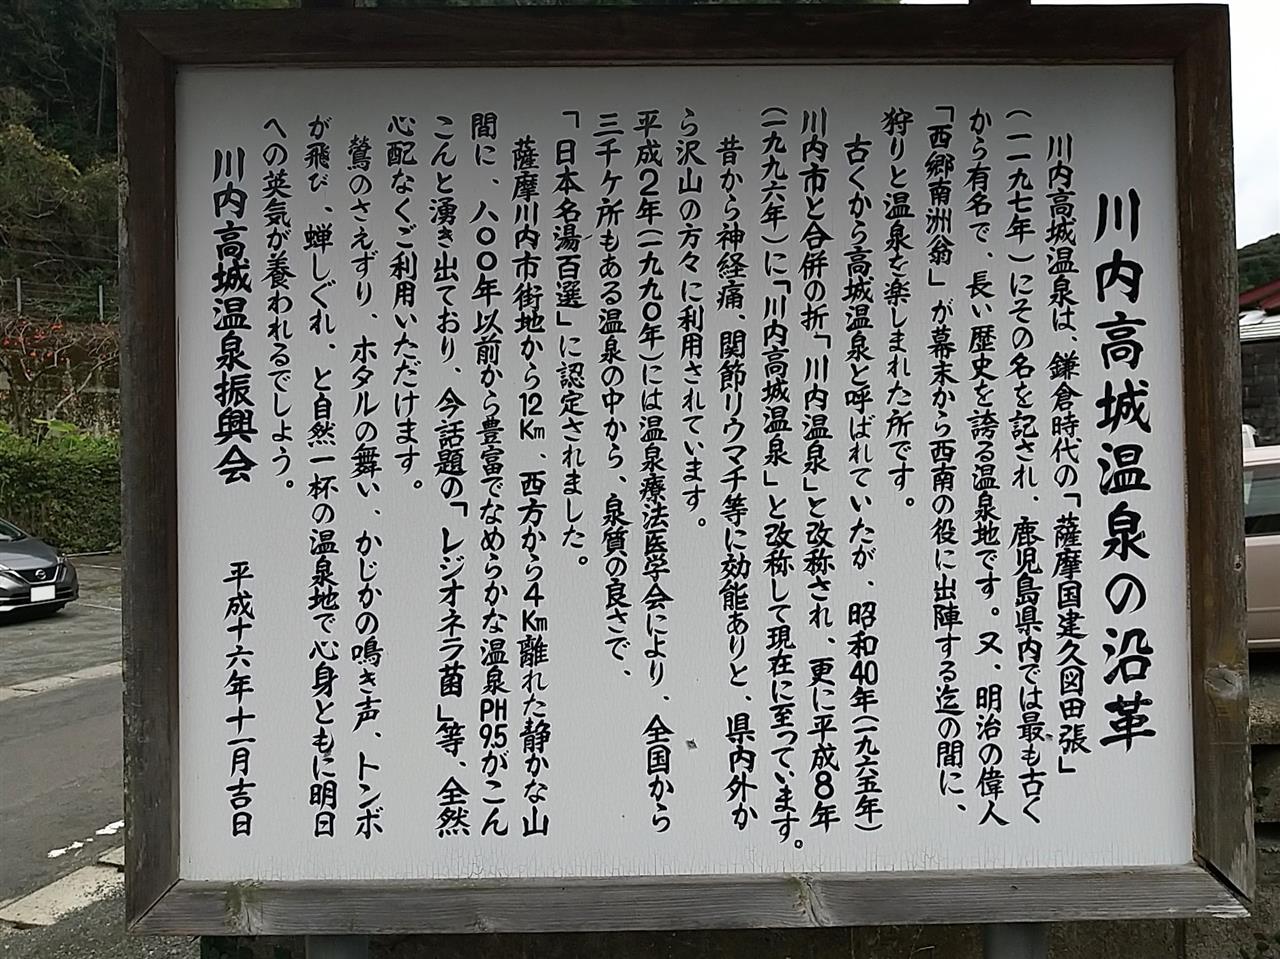 川内高城温泉の沿革
川内高城温泉は、鎌倉時代の「薩摩国建久図田張」
(一一九七年)にその名を記され、鹿児島県内では最も古く
から有名で、長い歴史を誇る温泉地です。又、明治の偉人
「西郷南洲翁」が幕末から西南の役に出陣する迄の間に、
狩りと温泉を楽しまれた所です。
古くから高城温泉と呼ばれていたが、昭和40年(一九六五年)
川内市と合併の折「川内温泉」と改称され、更に平成8年
(一九九六年)に「川内高城温泉」と改称して現在に至っています。
昔から神経痛、関節リウマチ等に効能ありと、県内外か
ら沢山の方々に利用されています。
平成2年(一九九〇年)には温泉療法医学会により、全国から
三千ケ所もある温泉の中から、泉質の良さで、
「日本名湯百選」に認定されました。
薩摩川内市街地から12Km、西方から4Km離れた静かな山
間に、八〇〇年以前から豊富でなめらかな温泉PH9.5がこん
こんと湧き出ており、今話題の「レジオネラ菌」等、全然
心配なくご利用いただけます。
鶯のさえずり、ホタルの舞い、かじかの鳴き声、トンボ
が飛び、蝉しぐれ、と自然一杯の温泉地で心身ともに明日
への英気が養われるでしょう。
川内高城温泉振興会 平成十六年十一月吉日